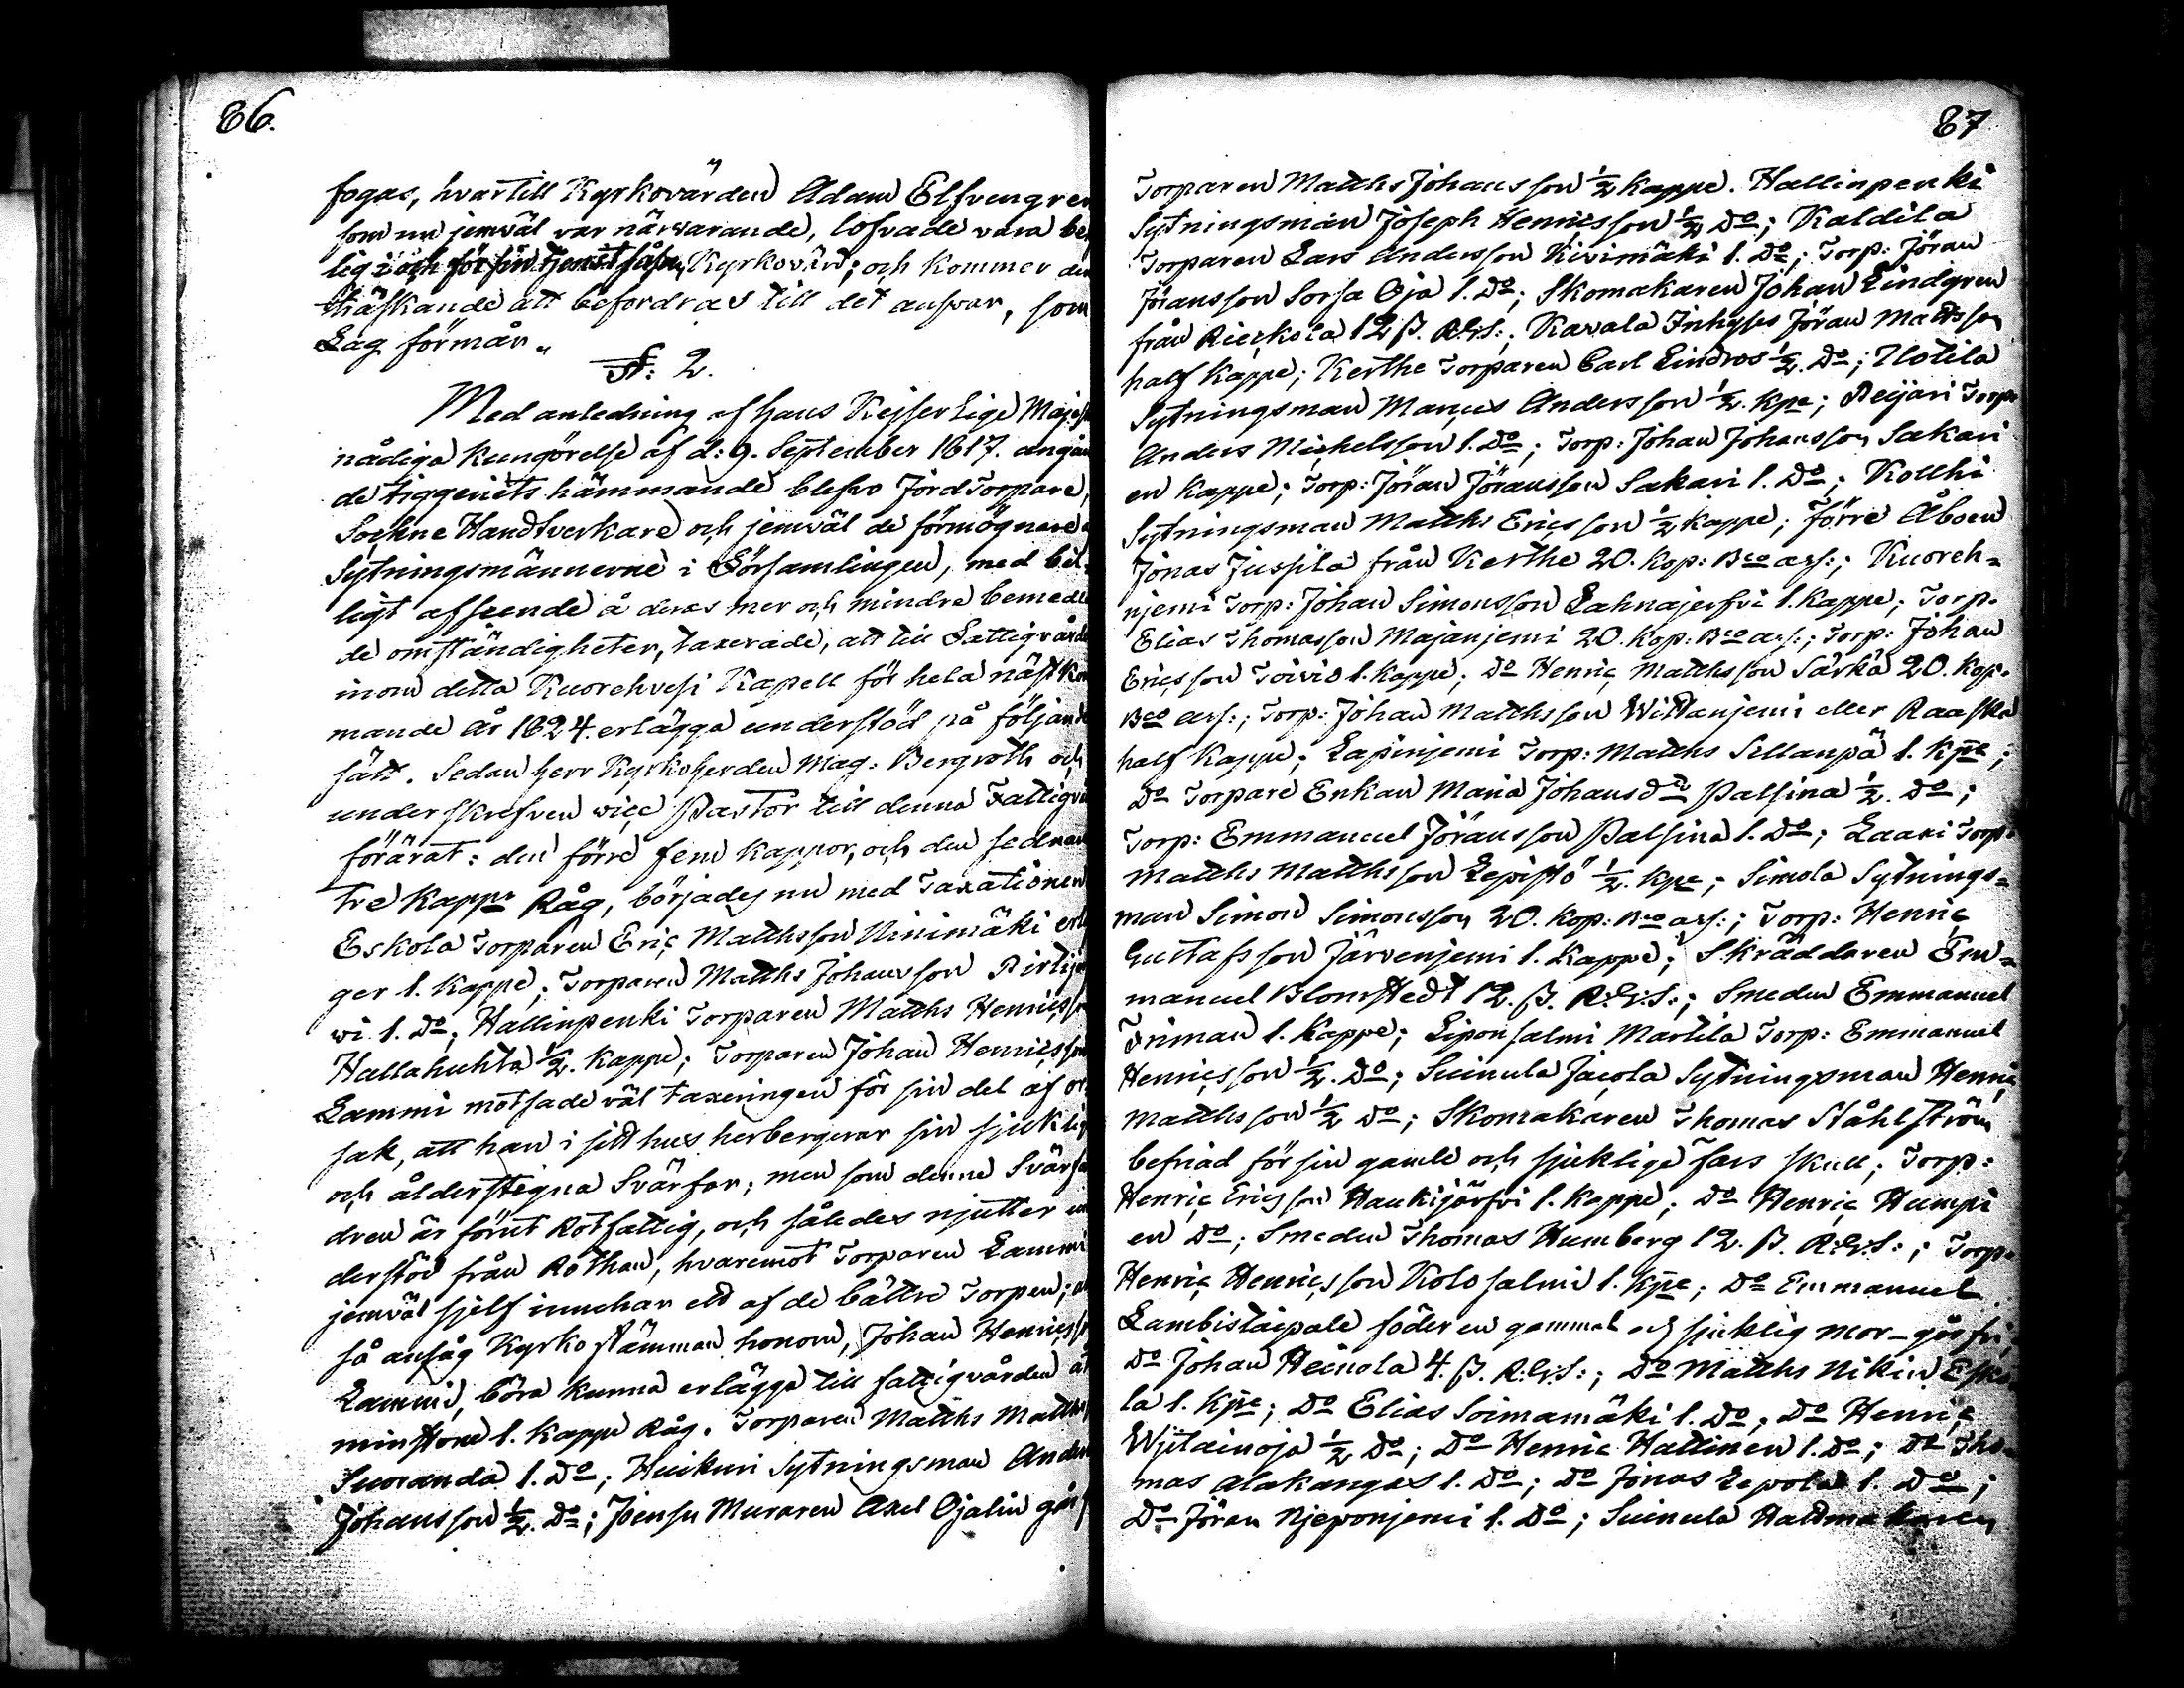 86.
fogas, hvartill Kyrkovärden Adam Elfvengren
som nu jemväl var närvarande, lofvade vara be
lig i och för sin tjenst såsom Kyrkovärd; och kommer den
träskande att befordras till det ansvar, som
Lag förmår.
§: 2.
Med anledning af Hans Kejserlige Majest
nådiga Kungörelse af d: 9. September 1817. angåen
de tiggeriets hämmande blefvo Jord Torpare,
Sockne Handtverkare och jemväl de förmögnare
Sytningsmännerne i Församlingen, med bil-
ligt afseende å deras mer och mindre bemedla
de omständigheter, taxerade, att till Fattigvården
inom detta Kuorehvesi Kapell för hela nästkom
mande år 1824. erlägga understöd på följande
sätt. Sedan herr Kyrkoherden Mag: Bergroth och
underskrefven vice Pastor till denna Fattigvå
förärat: den förre fem kappor, och den sednare
tre Kappr Råg, börjades nu med Taxationen
Eskola Torparen Eric Matthsson Ninimäki erläg
ger 1. Kappe; Torparen Matths Johansson Pirttijer
wi 1. Do; Hallinpenki Torparen Matths Henricsson
Hallahuhta ½. Kappe; Torparen Johan Henricsson
Lammi motsade väl taxeringen för sin del af or
sak, att han i sitt hus herbergerar sin sjuklig
och ålderstigna Svärfar; men som denne Svärfa
dren är förut Rotfattig, och således njutter un
derstöd från Rothan, hvaremot Torparen Lammi
jemväl sjelf innehar ett af de bättre Torpen; al
så ansåg Kyrkostämman honom, Johan Henricsson
Lammi, böra kunna erlägga till fattigvården åt
minstone 1. Kappe Råg. Torparen Matths Matths
Suoranda 1. Do; Huikuri Sytningsman Anders
Johansson ½. Do; Joensu Muraren Axel Ojalin går f
87
Torparen Matths Johansson ½ Kappe. Hallinpenki
Sytningsman Joseph Henricsson ½ Do; Kaldila
Torparen Lars Andersson Kivimäki 1. Do; Torp: Jöran
Jöransson Sorsa Oja 1. Do; Skomakaren Johan Lindgren
från Rieckola 12 β. R:G:S:; Kavala Inhyses Jöran Mattsson
half Kappe; Kerthe Torparen Carl Lindros ½. Do; Ilotila
Sytningsman Marcus Andersson ½. Kpe; Reijari Torpe
Anders Michelsson 1. Do; Torp: Johan Johansson Sakari
en Kappe; Torp: Jöran Jöransson Sakari 1. Do; Kollhi
Sytningsman Matths Ericsson ½ Kappe; Förre Åboen
Jonas Jussila från Kerthe 20. Kop: Bco ass:; Kuoreh-
njemi Torp: Johan Simonsson Lahnajerfvi 1. Kappe; Torp.
Elias Thomasson Majanjemi 20. Kop: Bco ass:; Torp: Johan
Ericsson Toivio 1. Kappe; Do Henric Matthsson Särkä 20. Kop:
Bco ass:; Torp: Johan Matthsson Wittanjemi eller Raaska
half Kappe; Lapinjemi Torp: Matths Sillanpä 1. Kpe;
Do Torpare Enkan Maria Johansdr Palsina ½. Do;
Torp: Emmanuel Jöransson Palsina 1. Do; Laari Torp:
Matths Matthsson Lepistö ½. Kpe; Simola Sytnings-
man Simon Simonsson 20. Kop: Bco ass:; Torp: Henric
Gustafsson Järvenjemi 1. Kappe; Skräddaren Em-
manuel Blomstedt 12. β. R:G:S:; Smeden Emmanuel
Friman 1. Kappe; Liponsalmi Martila Torp: Emmanuel
Henricsson ½. Do; Suinula Jacola Sytningsman Henric
Matthsson ½ Do; Skomakaren Thomas Ståhlström
befriad för sin gamle och sjuklige fars skull; Torp:
Henric Ericsson Haukijärfvi 1. Kappe; Do Henric Humpi
en Do; Smeden Thomas Humberg 12. β. R:G:S:; Torp:
Henric Henricsson Kolosalmi 1. Kpe; Do Emmanuel
Lambistaipale föder en gammal och sjuklig mor - går fri;
Do Johan Heinola 4. β. R:G:S:; Do Matths Nikin Esko
la 1. Kpe; Do Elias Soimamäki 1. Do; Do Henric
Wjitainoja ½ Do; Do Henric Hattinen 1. Do; Do Tho-
mas Alakangas 1. Do; Do Jonas Lepola 1. Do;
Do Jöran Njeponjemi 1. Do; Suinula Hattmakaren